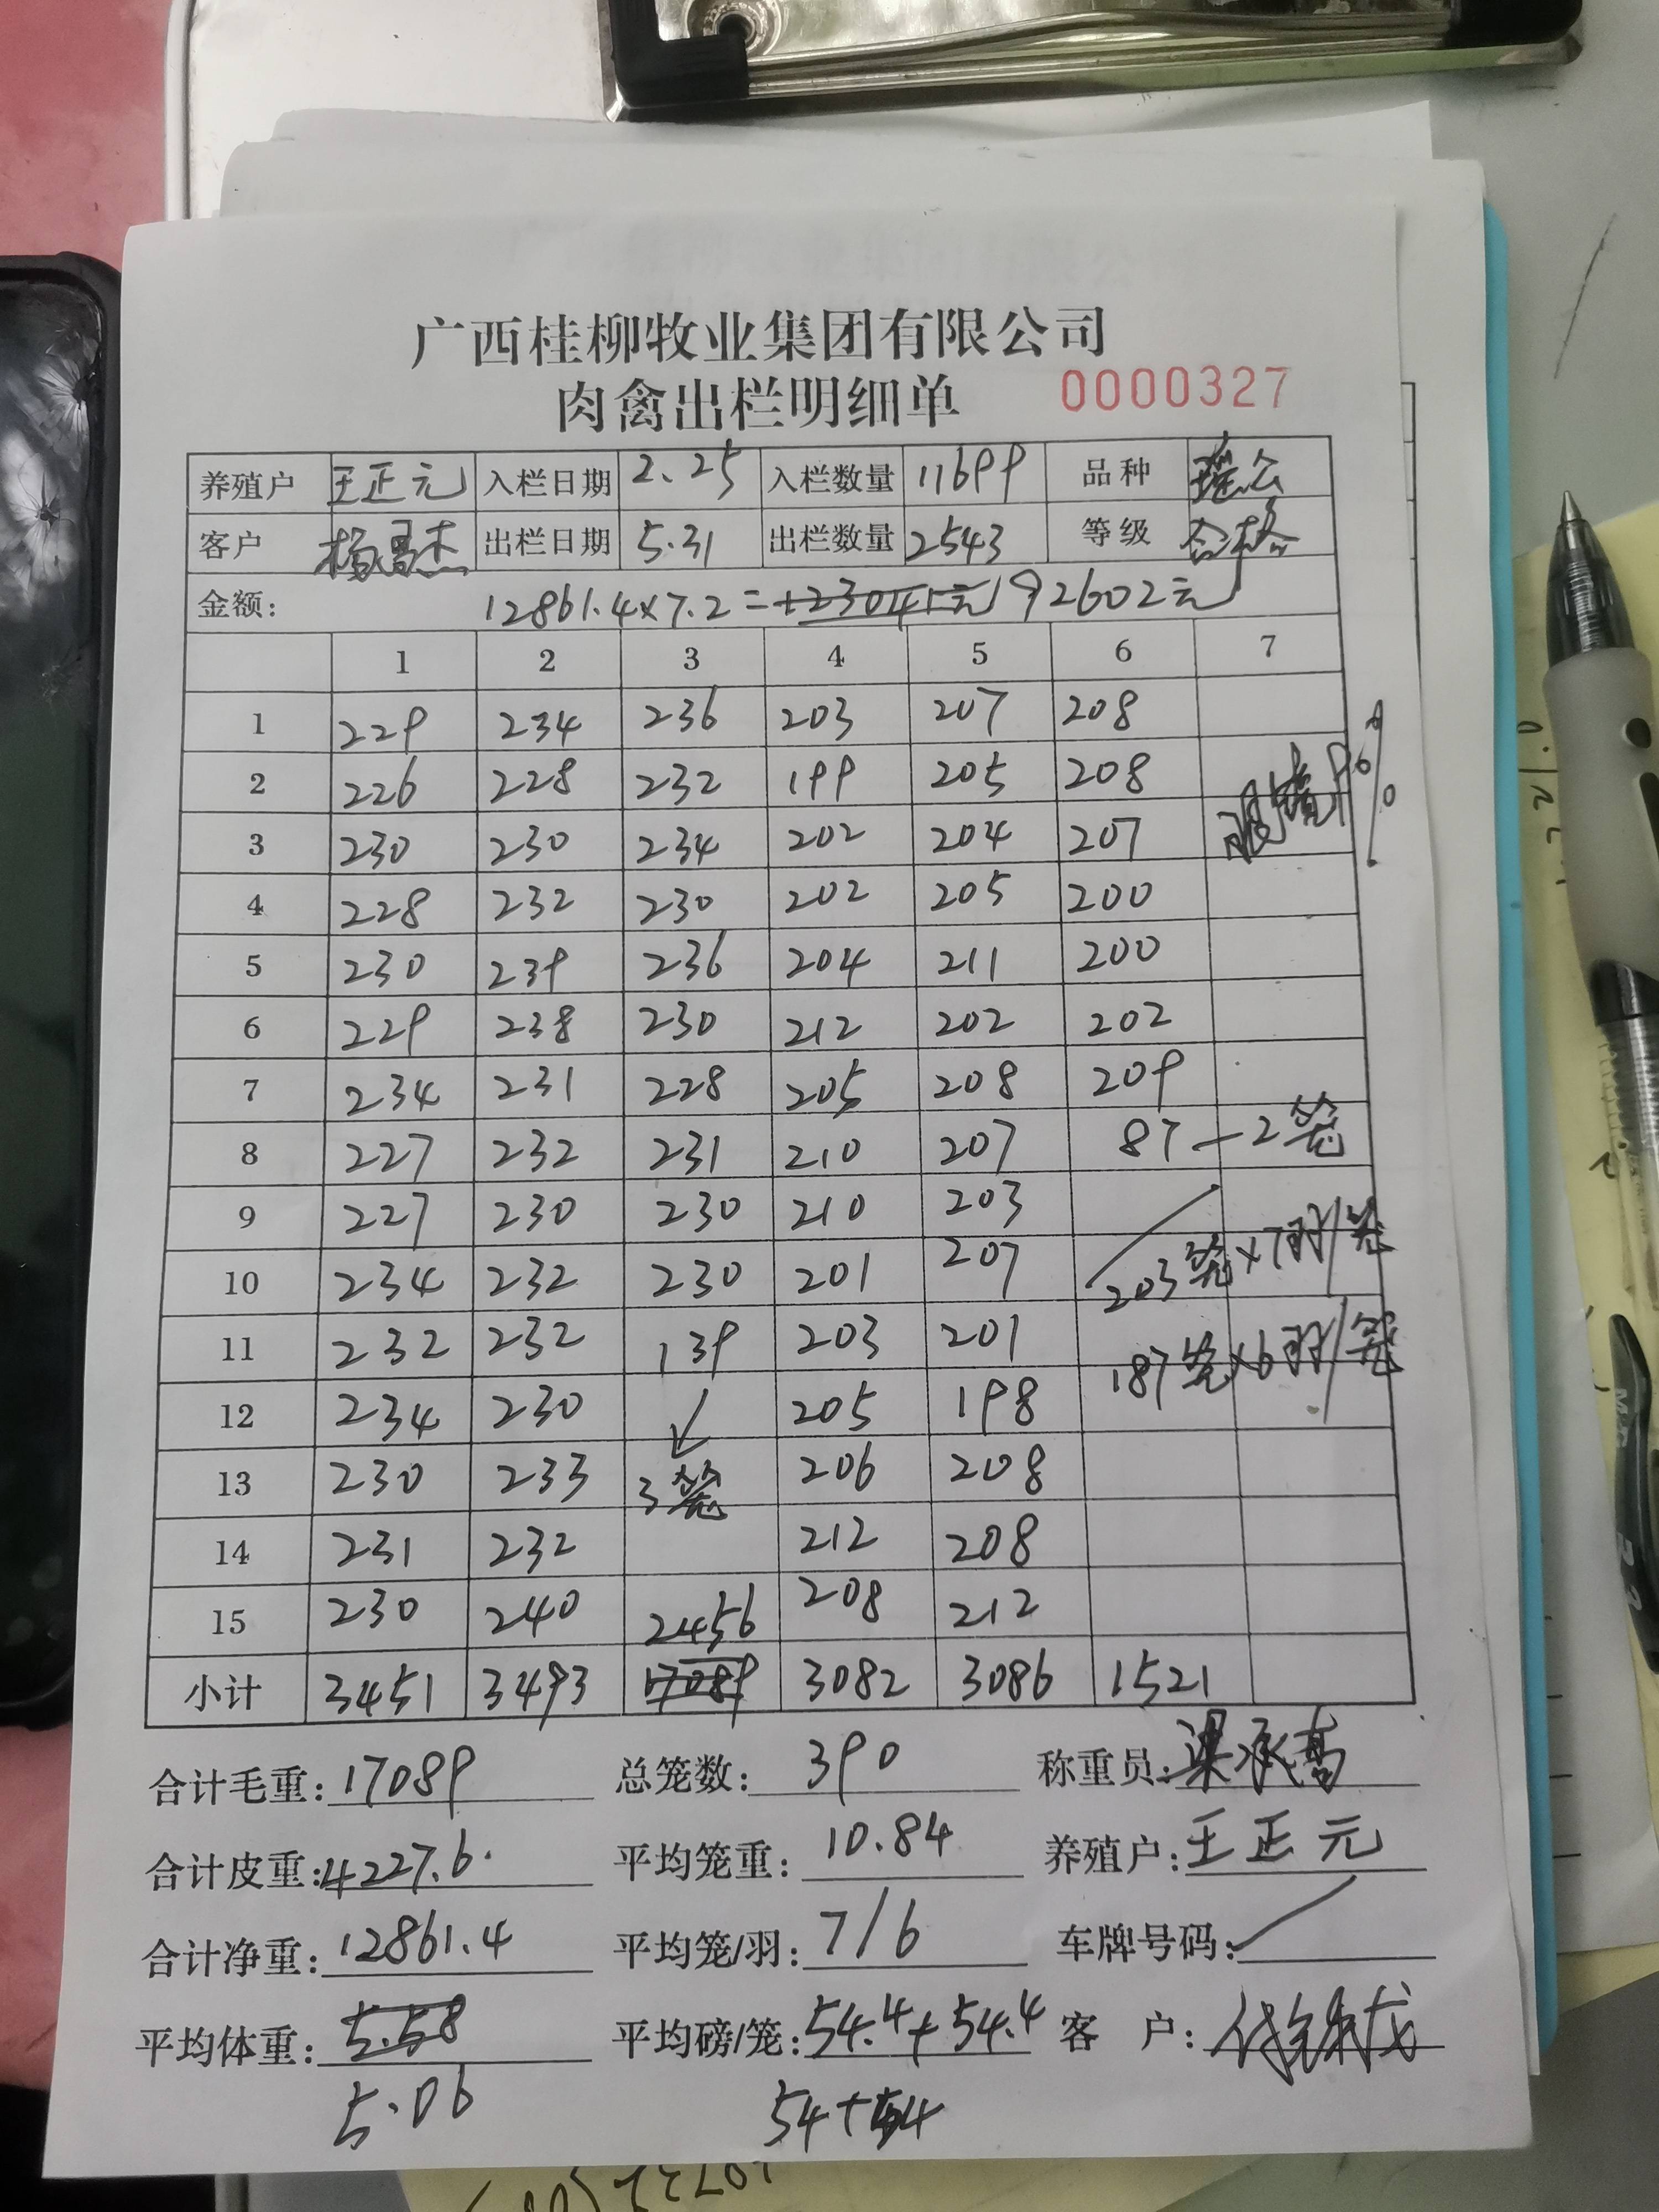 广西桂柳牧业集团有限公司
肉禽出栏明细单 0000327
养殖户 王正元 入栏日期 2.25 入栏数量 11699 品种 瑶公
客户 杨 杰 出栏日期 5.31 出栏数量 2543 等级 合格
金额: 12861.4×7.2= 92602元
1 2 3 4 5 6 7
1 229 234 236 203 207 208
2 226 228 232 199 205 208
3 230 230 234 202 204 207 96%
4 228 232 230 202 205 200
5 230 239 236 204 211 200
6 229 238 230 212 202 202
7 234 231 228 205 208 209
8 227 232 231 210 207 87—2笼
9 227 230 230 210 203
10 234 232 230 201 207 203笼×7羽/笼
11 232 232 139 203 201 187笼×6羽/笼
12 234 230 ↙ 205 198
13 230 233 3笼 206 208
14 231 232 212 208
15 230 240 2456 208 212
小计 3451 3493 17089 3082 3086 1521
合计毛重: 17089 总笼数: 390 称重员: 梁承高
合计皮重: 4227.6. 平均笼重: 10.84 养殖户: 王正元
合计净重: 12861.4 平均笼/羽: 7/6 车牌号码: /
平均体重: 5.58 平均磅/笼: 54.4+54.4 客 户:
5.06 54+54